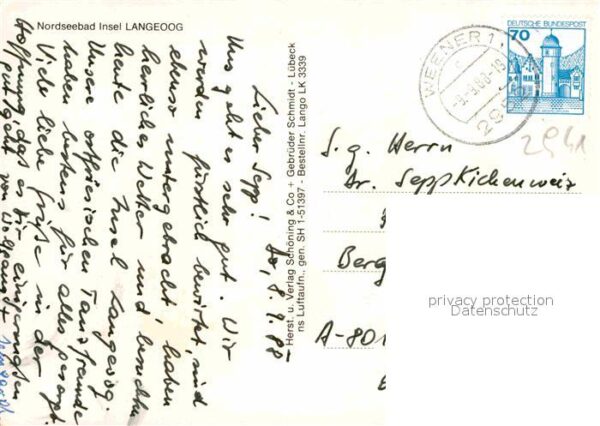 Nordseebad Insel LANGEOOG
Lieber Sepp! Do, 8.9.88
Uns geht es sehr gut. Wir
werden fürstlich bewirtet, sind
ebenso untergebracht, haben
herrliches Wetter und besuchen
heute die Insel Langeoog.
Unsere ostfriesischen Tanzfreunde
haben bestens für alles gesorgt.
Viele liebe Grüße in der
Hoffnung, das es Dir einigermaßen
gut geht von Wolfgang +
Herst. u. Verlag Schöning & Co + Gebrüder Schmidt - Lübeck
ns Luftaufn., gen. SH 1-51397 - Bestellnr. Lango LK 3339
WEENER 1
-9.-9.88-18
2952
DEUTSCHE BUNDESPOST
70
2941
S. g. Herrn
Dr. Sepp Kichenweiz
Berg
A-801
privacy protection
Datenschutz